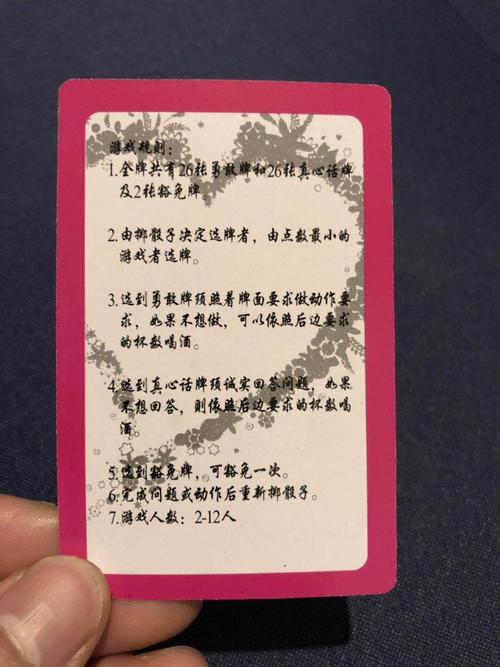 游戏规则：
1.全牌共有26张勇敢牌和26张真心话牌
及2张豁免牌
2.由掷骰子决定选牌者，由点数最小的
游戏者选牌。
3.选到勇敢牌须照着牌面要求做动作要
求，如果不想做，可以依照后边要求
的杯数喝酒。
4.选到真心话牌须诚实回答问题，如果
不想回答，则依照后边要求的杯数喝
酒
5.选到豁免牌，可豁免一次。
6.完成问题或动作后重新掷骰子。
7.游戏人数：2-12人